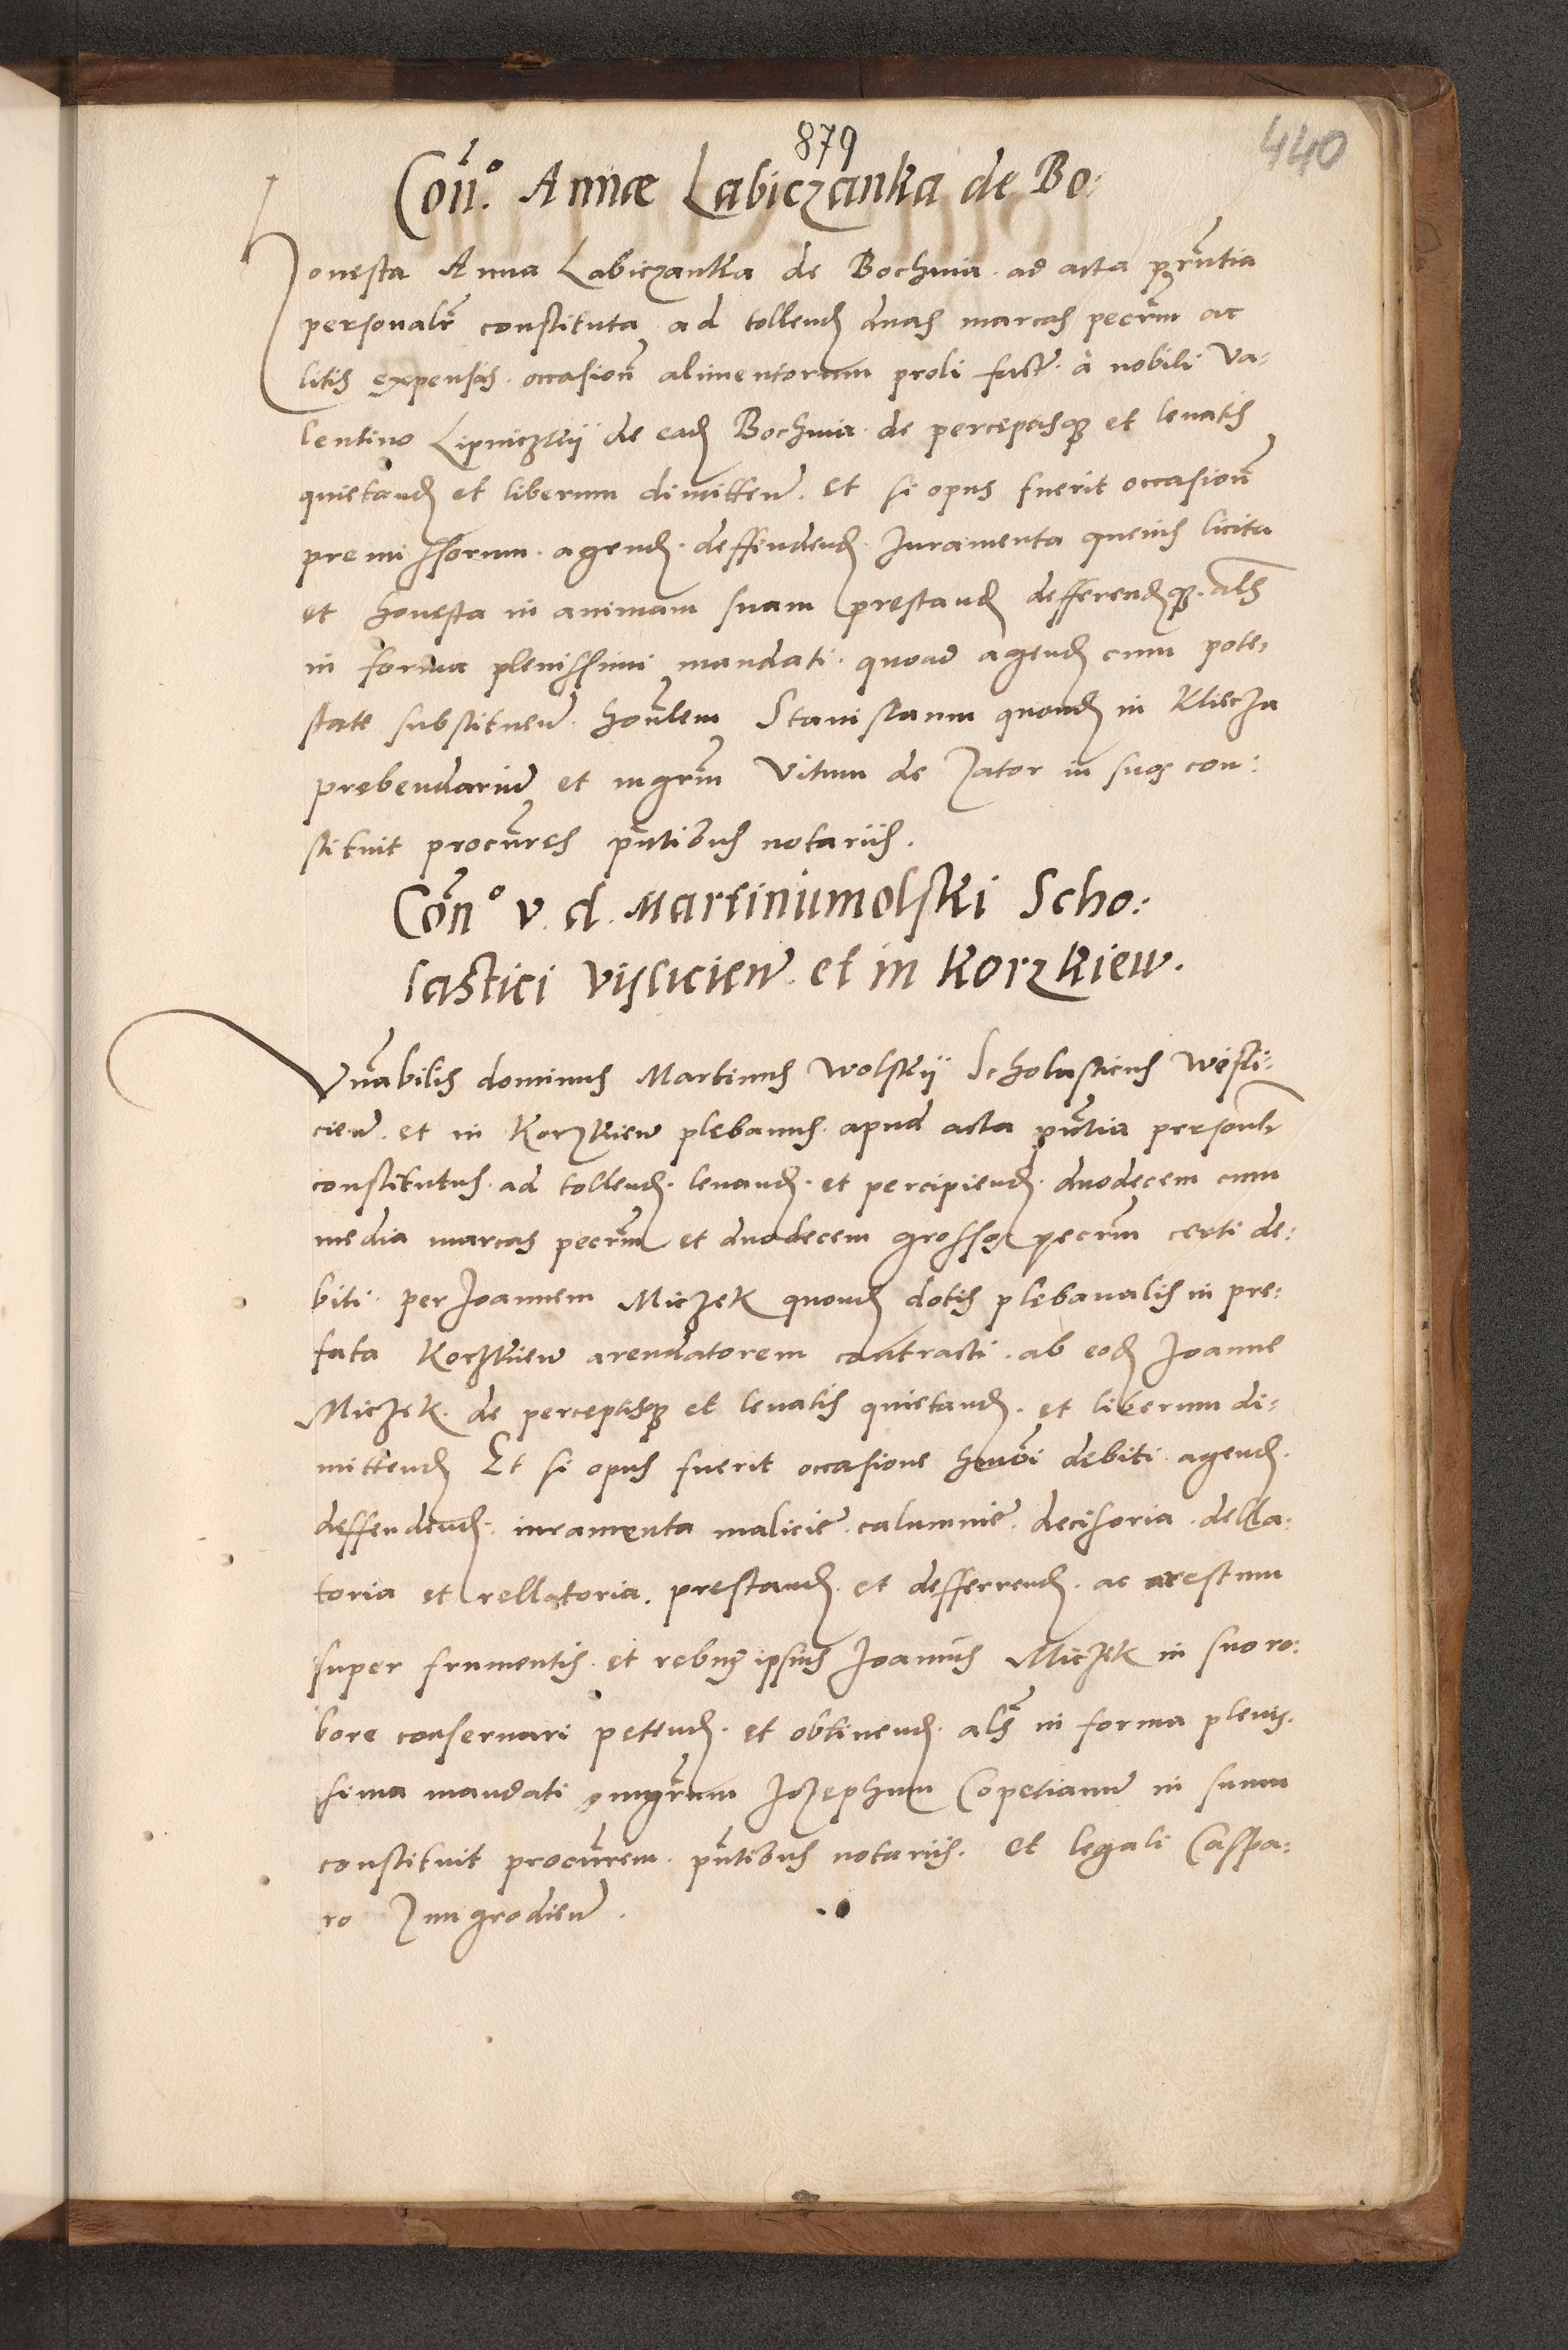 879
440
Con̄º. Annæ Labiczanka de Bo:
Honesta Anna Labiczankka de Bochnia ad acta prn̄tia
personalr̄ constituta ad tollend̄ duas marcas pecrm̄ ac
litis expensis occasion̄ alimentorum proli fact̄. à nobili Va-
lentino Lipniczkij de ead̄ Bochnia de perceptisq₃ et leuatis
quietand̄ et liberum dimitten̄. Et si opus fuerit occasion̄
premissorum. agend̄. deffendend̄ Iuramenta queuis licita
et honesta in animam suam prestand̄ defferendq₃. als̄
in forma plenissimi mandati. quoad agend̄ cum pote-
state substituen̄. hon̄lem Stanislaum quond̄ in Kliecza
prebendariū et mgrm̄ Vitum de Zator in suos con:
stituit procur̄es pn̄tibus notariis.
Con̄º v. d. Martini wolski Scho:
lastici visliciēn. et in Korzkiew.
Vn̄abilis dominus Martinus Wolskij Scholasticus Wisli-
ciēn. et in Korzkiew plebanus apud acta pn̄tia personlr̄
constitutus. ad tollend̄. leuand̄. et percipiend̄. duodecem cum
media marcas pecrm̄ et duodecem grossos pecrm̄ certi de:
biti. per Joannem Miczek quond̄ dotis plebanalis in pre:
fata Korzkiew arendatorem contracti. ab eod̄ Joanne
Miczek. de perceptisq₃ et leuatis quietand̄. et liberum di:
mittend̄ Et si opus fuerit occasione hmōi debiti agend̄.
deffendend̄. iuramenta malicie. calumnie. decisoria. della:
toria et rellatoria. prestand̄. et defferrend̄. ac arestum
super frumentis. et rebus ipsius Joannis Miczek in suo ro:
bore conseruari petend̄. et obtinend̄. als̄ in forma plenis-
sima mandati mgrum̄ Jozephum Copetianū in suum
constituit procur̄em. pn̄tibus notariis. et legali Caspa:
ro Jungrodiēn.